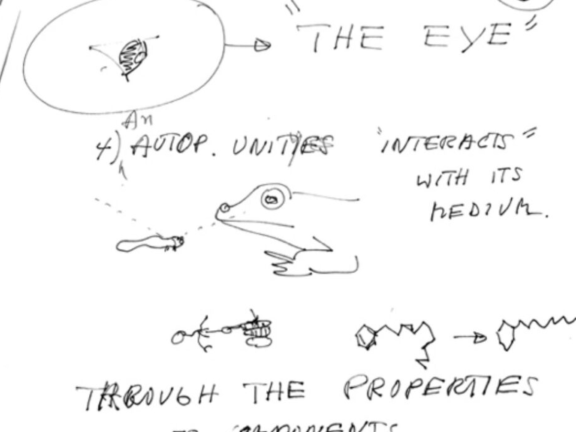 " THE EYE"
An
4) AUTOP. UNITIES "INTERACTS"
WITH ITS
MEDIUM.
THROUGH THE PROPERTIES